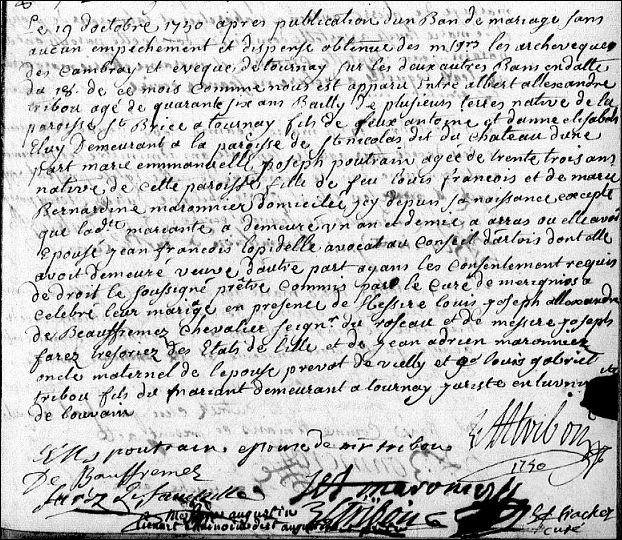 Le 19 doctobre 1730 apres publication dun Ban de mariage sans
aucun empechement et dispense obtenue des m/grs les archeveque
des Cambray et eveque de tournay sur les deux autres Bans en datte
du 18. de ce mois comme nous est apparu Entre albert allexandre
tribou agé de quarante six ans Bailly de plusieurs terres native de la
paroisse St Brice a tournay fils de feux antoine et danne elisabet
Eluy demeurant a la paroisse de St nicolas dit du chateau dune
part marie emmanuelle joseph poutrain agée de trente trois ans
native de cette paroisse fille de feu louis francois et de marie
Bernardine maronnier domiciliée icy depuis sa naissance excepté
que ladte mariante a demeuré un an et demie a arras ou elle avoit
Epousé jean francois lopidelle avocat au Conseil dartois dont elle
avoit demeuré veuve dautre part ayans les Consentement requis
de droit le soussigné prêtre commis par le Curé de merignies a
celebré leur mariage en presence de Messire louis joseph allexandre
de Beauffremez chevalier seignr du roseau et de messire joseph
farez tresoriez des Etats de lille et de jean adrien maronniez
oncle maternel de lepouse prevot de vielly et de louis gabriel
tribou fils du mariant demeurant a tournay juriste en luniver
de louvain
poutrain epouse de mr tribou
AA tribou
1730
De Bauffremez
farez
maronier
augustin
tribou
curé